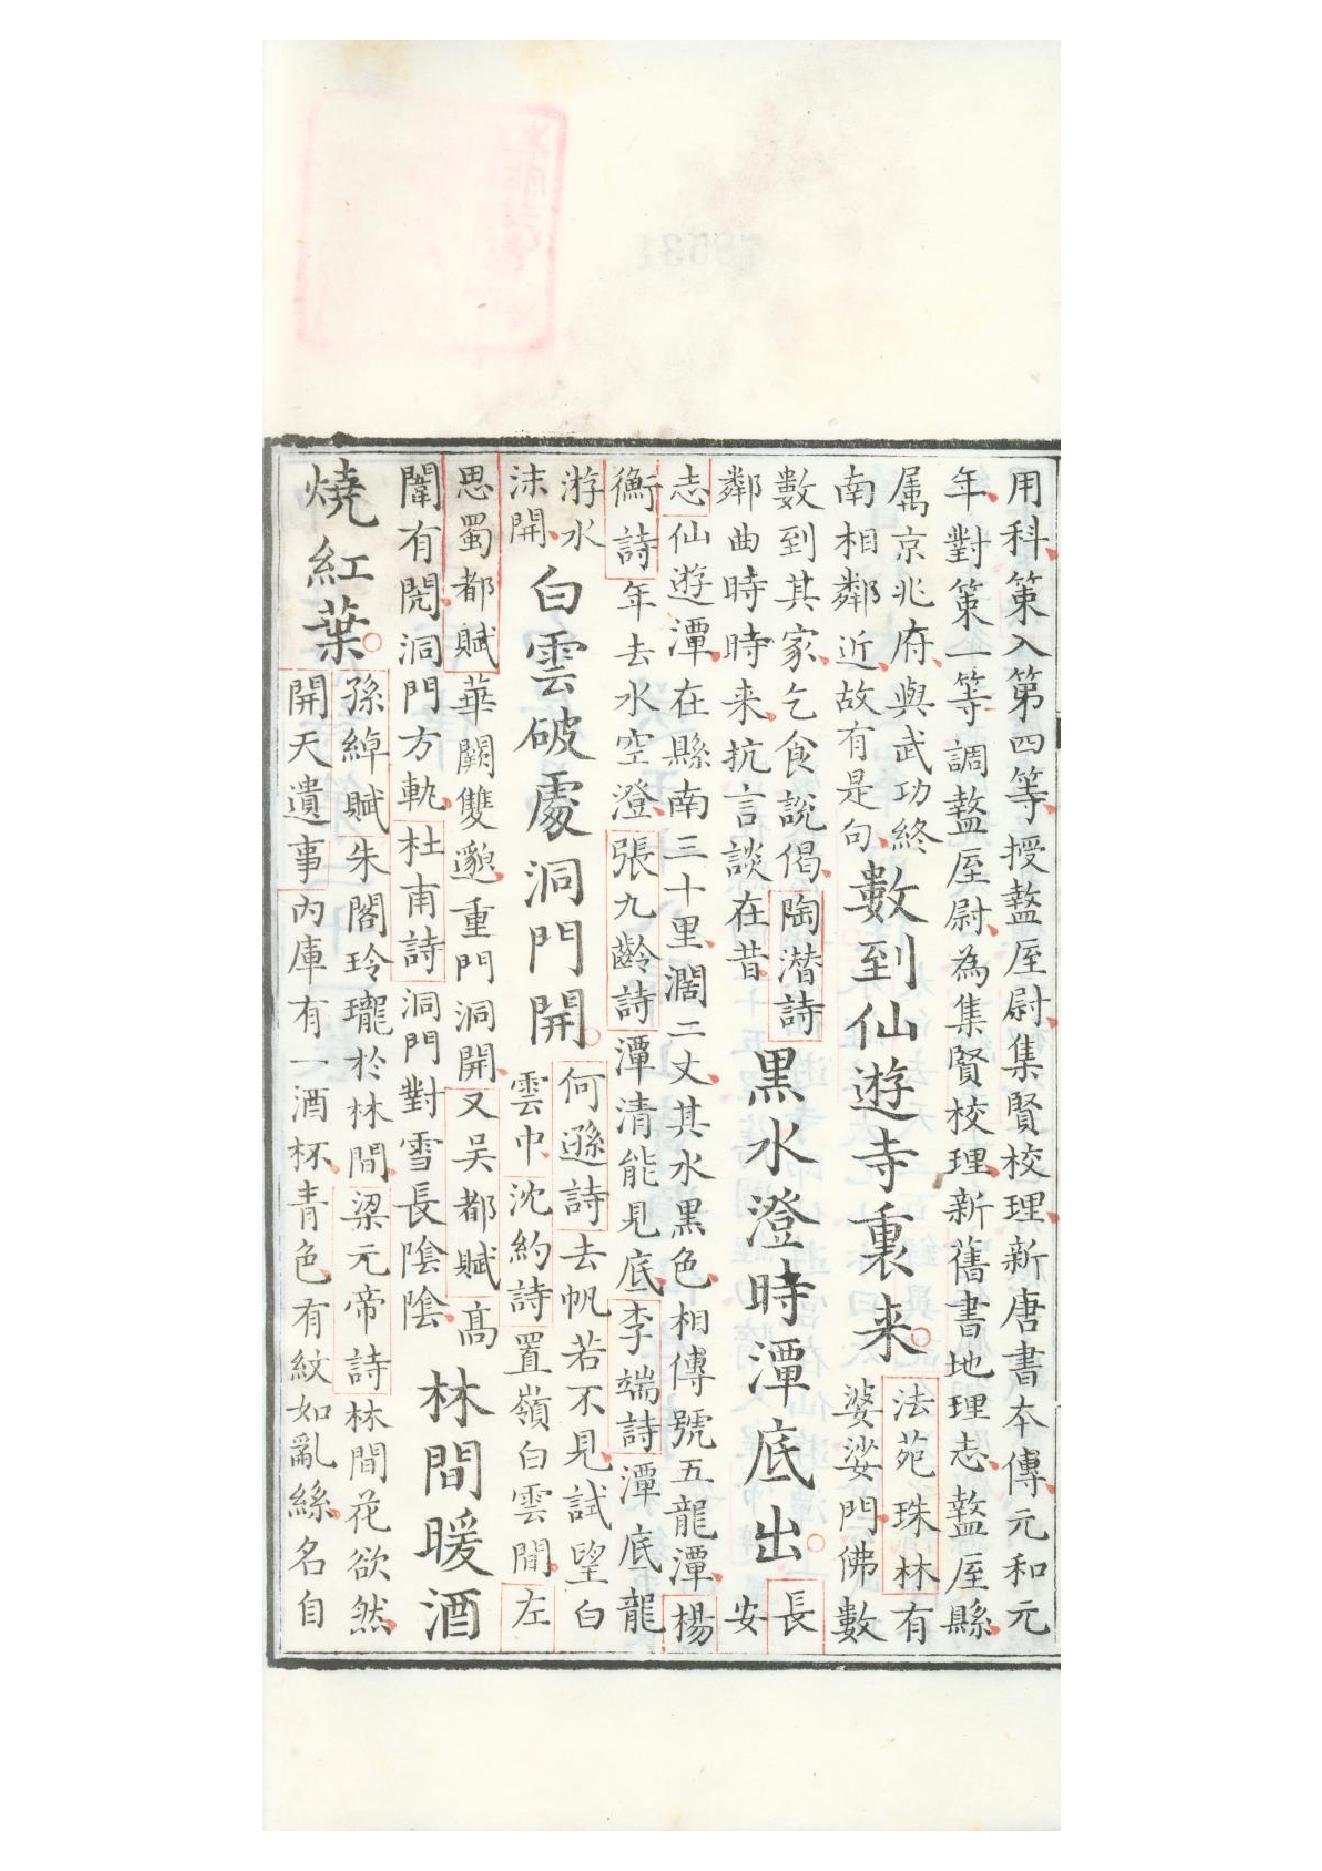 用科策入第四等授盩厔尉集賢校理新唐書本傳元和元
年對策一等調盩厔尉為集賢校理新舊書地理志盩厔縣
属京兆府與武功終
南相鄰近故有是句
數到仙遊寺裏来
法苑珠林有
婆娑門佛數
數到其家乞食說偈陶潜詩
鄰曲時時来抗言談在昔
黒水澄時潭底出
長
安
志仙遊潭在縣南三十里濶二丈其水黒色相傳號五龍潭楊
衡詩年去水空澄張九齡詩潭清能見底李端詩潭底龍
游水
沫開
白雲破處洞門開
何遜詩去帆若不見試望白
雲中沈約詩置嶺白雲間左
思蜀都賦華闕雙邈重門洞開又吳都賦高
闈有閌洞門方軌杜甫詩洞門對雪長陰陰
林間暖酒
燒紅葉
孫綽賦朱閣玲瓏於林間梁元帝詩林間花欲然
開天遺事內庫有一酒杯青色有紋如亂絲名自